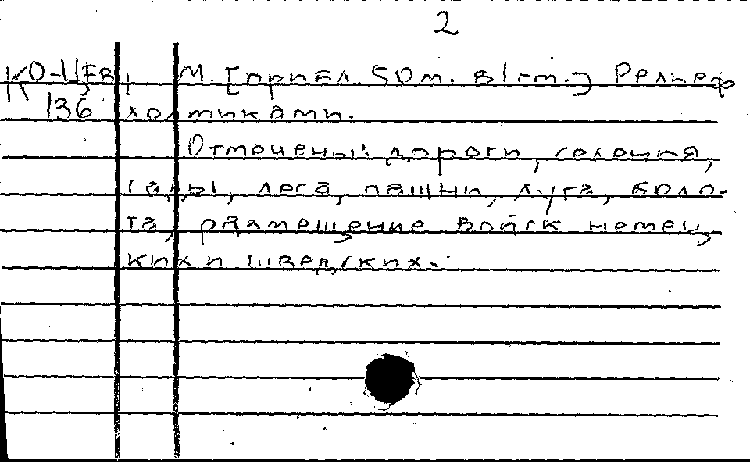 2
КО-ЦЕВ, М. [прибл. 50м. в 1 см.] Рельеф
136 холмиками.
Отмечены: дороги, селения,
сады, леса, пашни, луга, боло-
та, размещение войск немец
ких и шведских.